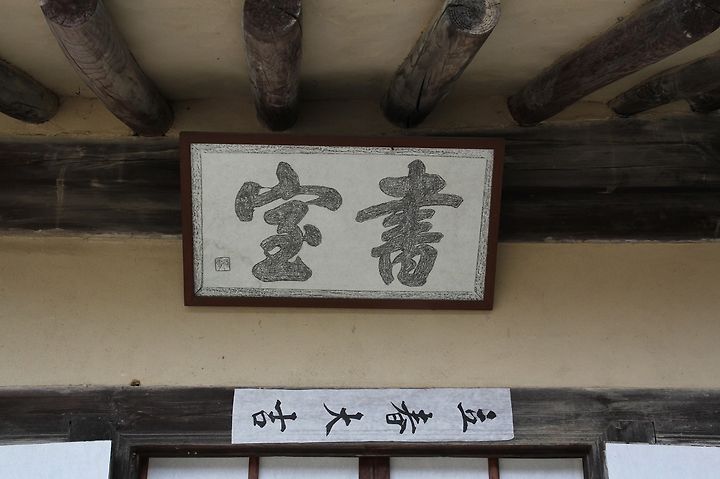 書室
立春大吉